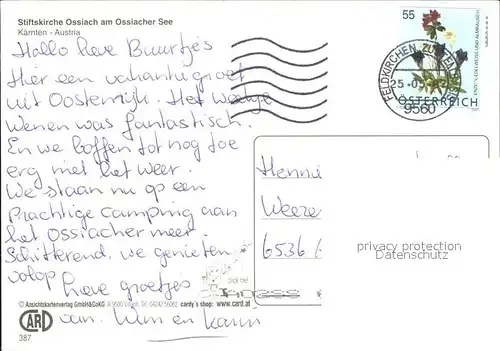 Stiftskirche Ossiach am Ossiacher See
Kärnten - Austria
Hallo lieve Buurtjes
Hier een vakantiegroet
uit Oostenrijk. Het weekje
Wenen was fantastisch.
En we boffen tot nog toe
erg met het weer.
We staan nu op een
prachtige camping aan
het Ossiacher meer.
Schitterend, we genieten
volop
lieve groetjes
van. Wim en
© Ansichtskartenverlag GmbH&CoKG
cardy's shop: www.card.at
CARD
387
55
FELDKIRCHEN
25-05
9560
ÖSTERREICH
6536
privacy protection
Datenschutz
click me!